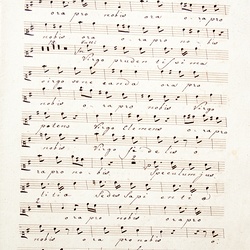 ora pro nobis ora ora pro
nobis ora o- ra pro no- bis
Virgo pruden tis si ma
virgo vene randa ora pro
nobis o- ra pro nobis Virgo
potens Virgo Clemens o- ra pro
nobis Virgo fi- de lis
ra pro nobis Speculum jus
titia Sedes Sapi en ti ae
ora pro nobis ora pro nobis
nobis ora pro nobis o-